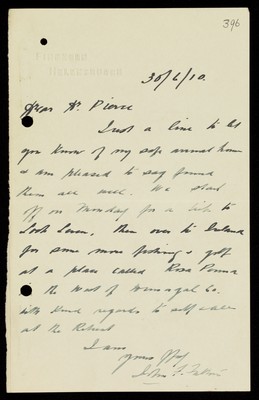 396
30/6/10.
Dear Dr. Pierce
Just a line to let
you know of my safe arrival home
& am pleased to say found
them all well. We start
off on Monday for a trip to
Loch Leven, then over to Ireland
for some more fishing & golf
at a place called Rosa Penna
in the West of Co.
with kind regards to all
at the Retreat
I am
yours
John